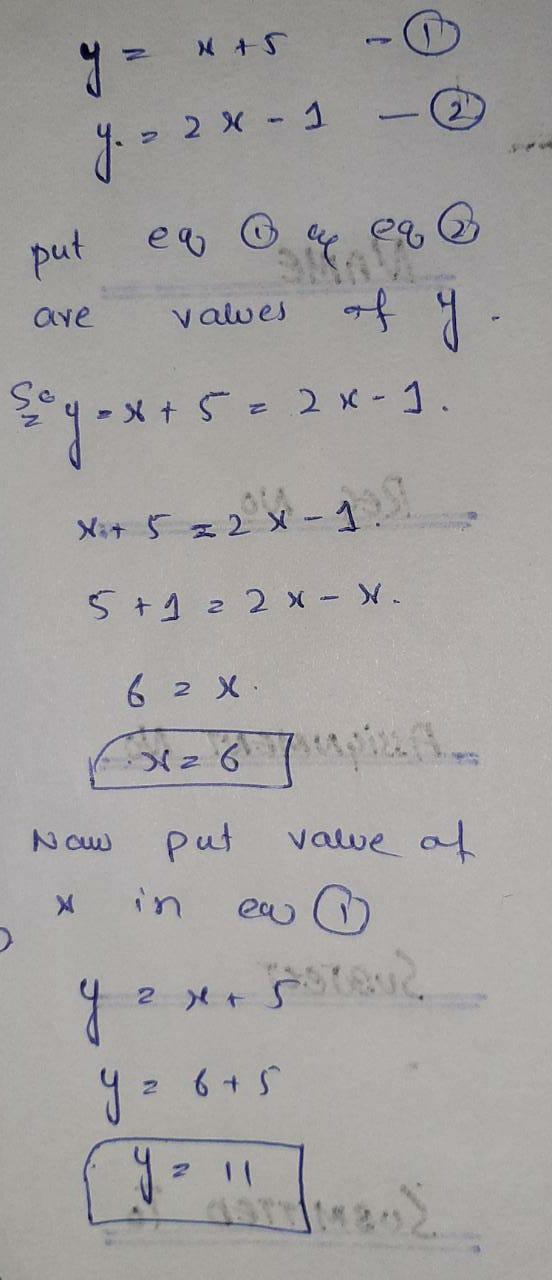 y = x + 5 - ①
y. = 2x - 1 - ②
put eq ① & eq ②
are values of y.
So y = x + 5 = 2x - 1.
x + 5 = 2x - 1.
5 + 1 = 2x - x.
6 = x.
x = 6
Now put value of
x in eq ①
y = x + 5
y = 6 + 5
y = 11